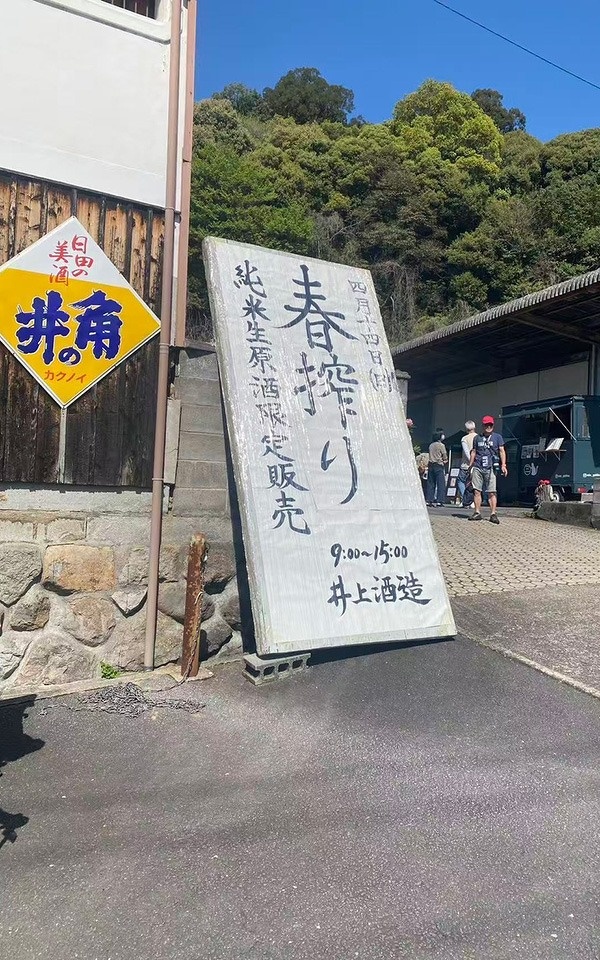 日田の
美酒
井の角
カクノイ
四月十四日(日)
春搾り
純米生原酒限定販売
9:00~15:00
井上酒造